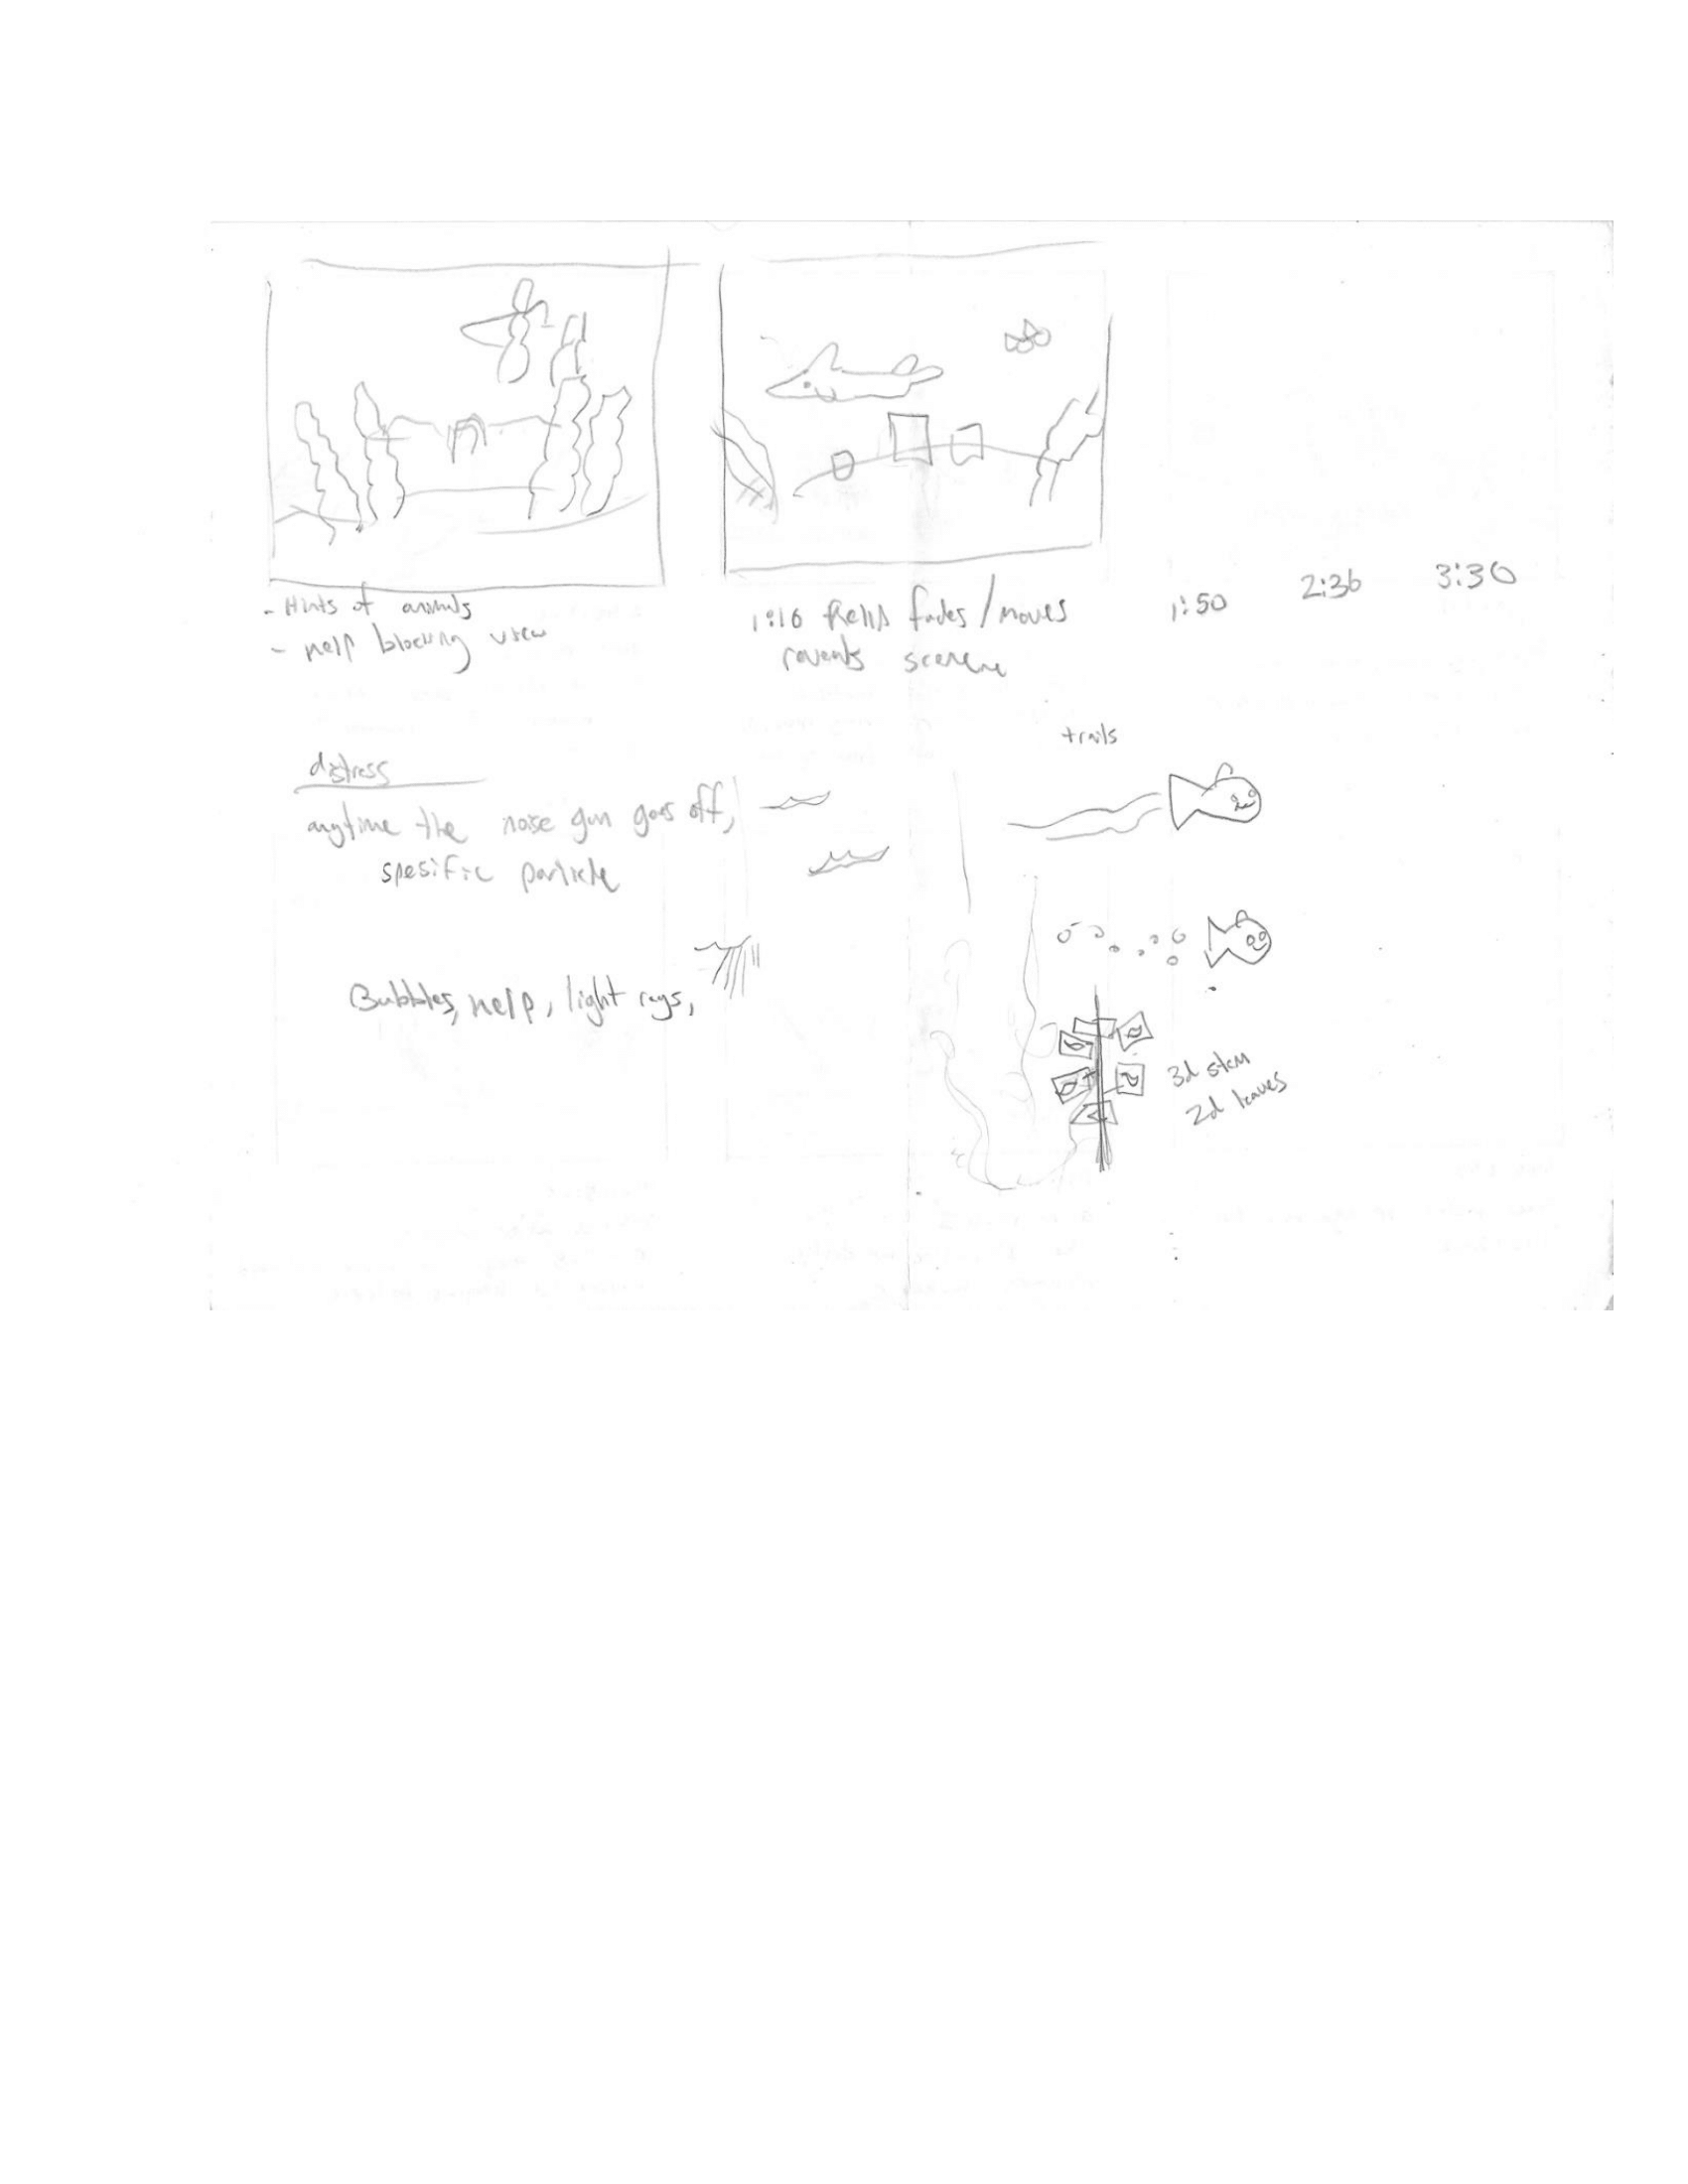 - Hints of animals
- kelp blocking view
1:16 Kelp fades/moves
reveals
1:50
2:36
3:30
trails
distress
anytime the noise gun goes off,
spesific particle
Bubbles, kelp, light rays,
3d stem
2d leaves